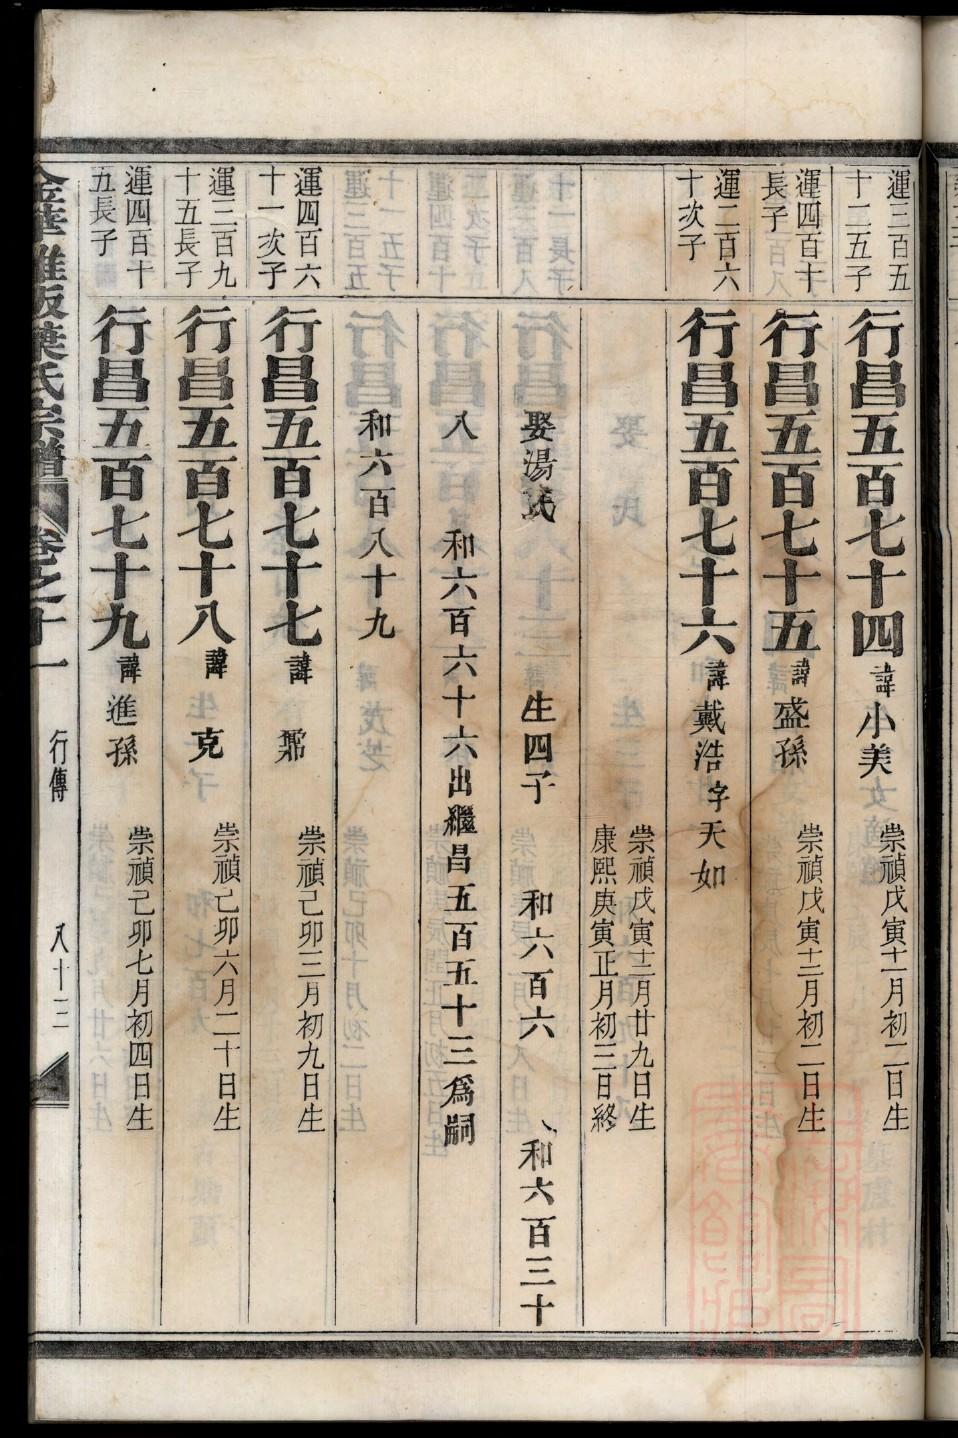 運三百五
十二五子
行昌五百七十四
諱小美
崇禎戊寅十一月初二日生
運四百十
長子
行昌五百七十五
諱盛孫
崇禎戊寅十二月初二日生
運二百六
十次子
行昌五百七十六
諱戴浩字天如
崇禎戊寅十二月廿九日生
康熙庚寅正月初三日終
娶湯氏
生四子
和六百六
和六百三十
八
和六百六十六出繼昌五百五十三為嗣
和六百八十九
運四百六
十一次子
行昌五百七十七
諱
崇禎己卯三月初九日生
運三百九
十五長子
行昌五百七十八
諱克
崇禎己卯六月二十日生
運四百十
五長子
行昌五百七十九
諱進孫
崇禎己卯七月初四日生
葉氏宗譜
卷之十一
行傳
八十三